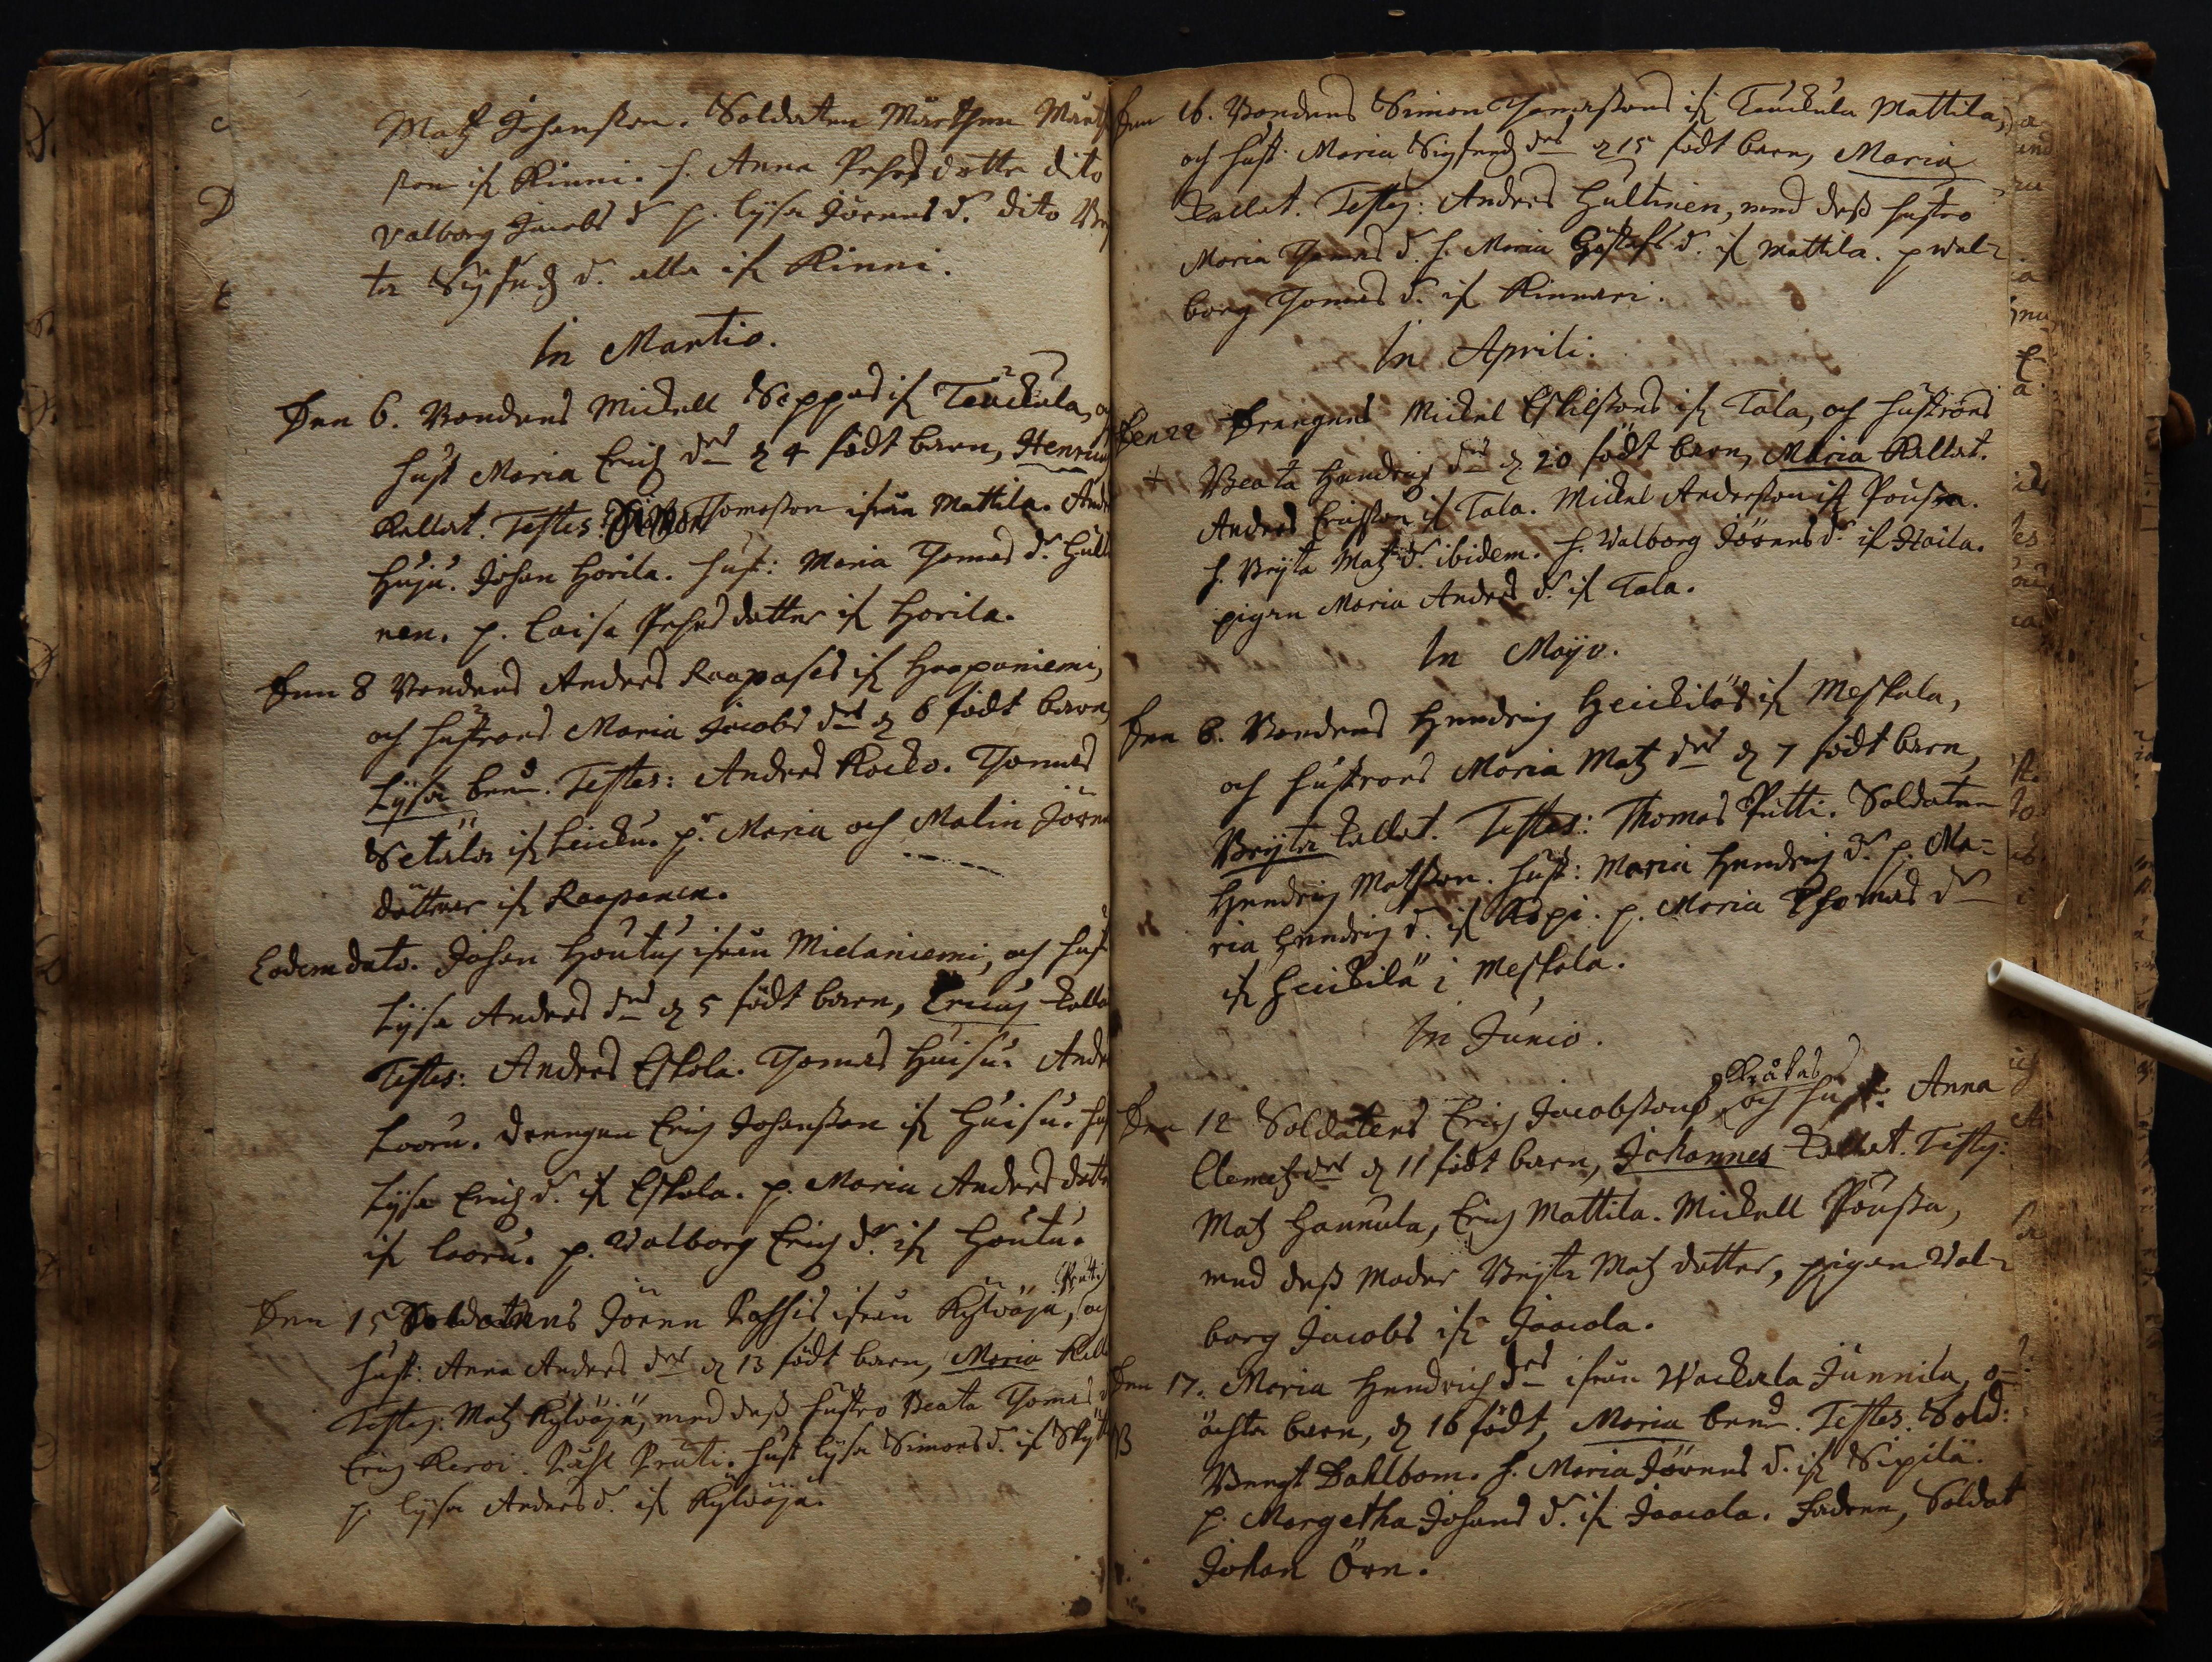 Matz Johansson. Soldaten Mårthen Mårt
son if Kinni. h. Anna Pehrsdotter dito
Valborg Jacobs d. p. Lijsa Jörens d. dito Bri
ta Sigfredz d. alla if Kinni.
In Martio.
Den 6. Bondens Mickell Seppäs if Teückula, och
hust Maria Erichz drs d 4 födt barn, Henricus
Kallat. Testes: Simon Tomasson ifrån Mattila. Andr
Huju. Johan Horila. hust: Maria Thomas d. Hult
nen. p. Caisa Pehrs dotter if Horila.
Den 8 Bondens Anders Raapases if Haapaniemi,
och hustrons Maria Jacobs drs d 6 födt barn,
Lijsa bend. Testes: Anders Kocko. Thomas
Setälä if Leicku. pr Maria och Malin Jören
döttrar if Raapanen.
Eodem dato. Johan Houtus ifrån Mielaniemi, och hust
Lijsa Anders drs d 5 födt barn, Ericus kallat
Testes: Anders Eskola. Thomas Huisu. Andr
Looru. Drengen Erich Johansson if Huisu. hust
Lijsa Erichz d. if Eskola. p. Maria Anders dott
if Looru. p. Valborg Erichz d. if Houtu.
Pruti
Den 15 Soldatens Jören Rossis ifrån Kylvöjä, och
hust: Anna Anders drs d 13 födt barn, Maria Kall
Testes: Matz Kylvöjä, med dess hustro Beata Thomas d
Erich Keroi. Påhl Pruti. hust Lijsa Simons d. if Skytt
p. Lijsa Anders d. if Kylvöjä.
Den 16. Bondens Simon Thomassons if Teuckula Mattila,
och hust: Maria Sigfredz drs d 15 födt barn, Maria
Kallat. Testes: Anders Hultinen, med dess hustro
Maria Thomas d. h. Maria Göstafs d. if Mattila. p Wal-
borg Thomas d. if Kinnari.
In Aprili.
Den 22 Drengens Mickel Eskilssons if Tala, och hustrons
+ Beata Hendrichz drs d 20 födt barn, Maria Kallat.
Anders Ericsson if Tala. Mickel Andersson if Pousa.
h. Brijta Matz d. ibidem. h. Walborg Jörens d. if Haila.
pigan Maria Anders d. if Tala.
In Mayo.
Den 8. Bondens Hendrich Heickiläs if Meskala,
och hustrons Maria Matz drs d 7 födt barn,
Brijta kallat. Testes: Thomas Putti. Soldaten
Hendrich Matsson. hust: Maria Hendrichz d. p. Ma=
ria Hendrichz d. if Kopi. p. Maria Thomas dr
if Heickilä i Meskala.
In Junio.
Kråkas
Den 12 Soldatens Erich Jacobssons och hust: Anna
Clemetz drs d 11 födt barn, Johannes Kallat. Testes:
Matz Hannula, Erich Mattila. Mickell Poussa,
med dess moder Brijta Matz dotter, pigan Val-
borg Jacobs if Jaacola.
Den 17. Maria Hendrichz drs ifrån Wackala Junnila, o-
ächta barn, d 16 födt, Maria bend. Testes. Sold:
Bengt Dahlbom. h. Maria Jörens d. if Sipilä.
p. Margetha Johans d. if Jaacola. Fadren, Soldat
Johan Örn.